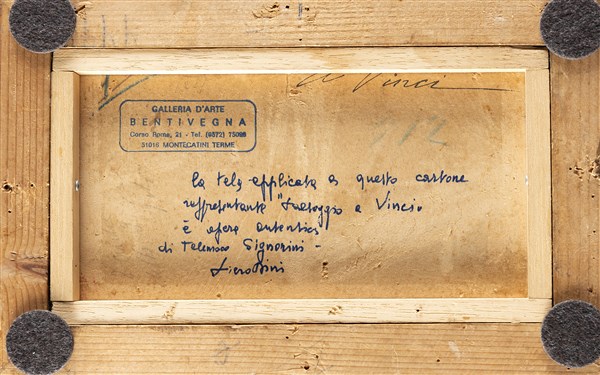 a Vinci
GALLERIA D'ARTE
BENTIVEGNA
Corso Roma, 21 - Tel. (0572) 75098
51016 MONTECATINI TERME
12
la tela applicata a questo cartone
rappresentante "Lastoggio a Vinci"
è opera autentica
di Telemaco Signorini -
Piero Dini